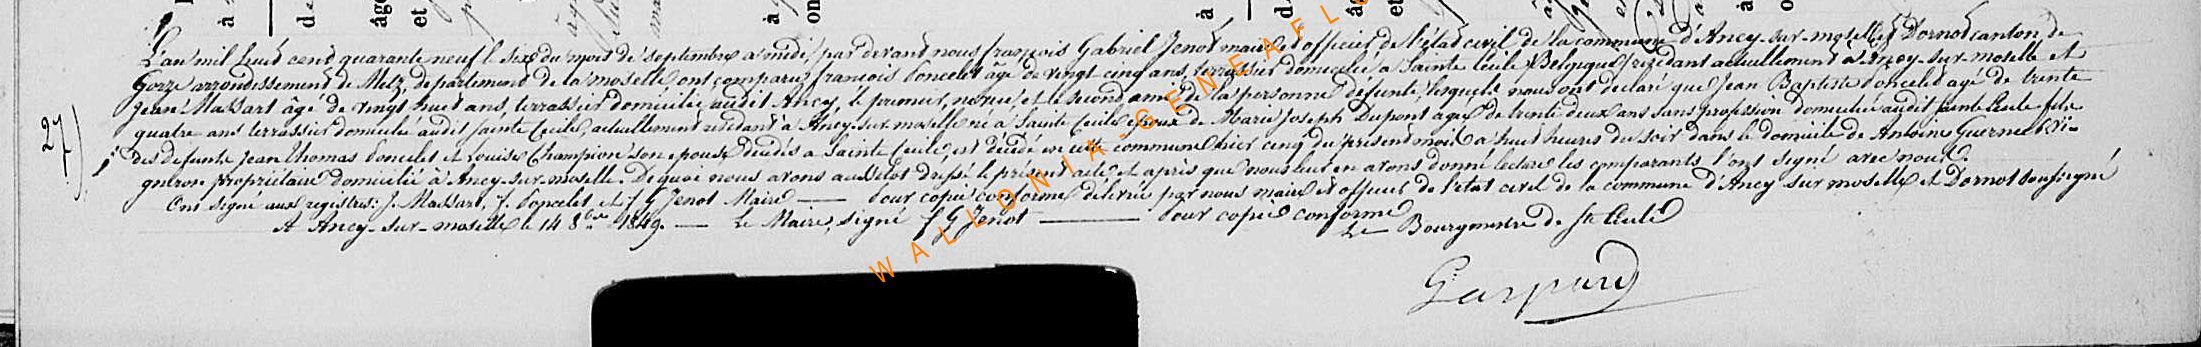 à d âgé et à on à d âgé et à o
L'an mil huit cent quarante neuf le six du mois de septembre à midi, par devant nous françois Gabriel Jenot maire et officier de l'état civil de la commune d'Ancy-sur-moselle et Dornot canton de
Gorze arrondissement de Metz departement de la moselle ont comparu françois Poncelet âgé de vingt cinq ans, terrassier domicilié à Sainte Cécile (Belgique) residant actuellement à Ancy-sur-moselle et
Jean Massart âgé de vingt huit ans, terrassier domicilié audit Ancy, le premier, neveu, et le second ami de la personne defunte, lesquels nous ont declaré que Jean Baptiste Poncelet agé de trente
quatre ans terrassier domicilié audit Sainte Cecile, actuellement residant à Ancy-sur-moselle né à Sainte Cecile epoux de Marie Joseph Dupont agée de trente deux ans sans profession domiciliée audit Sainte Cecile fils
des defunts Jean Thomas Poncelet et Louise Champion son epouse décédés à Sainte Cecile, est décédé en cette commune hier cinq du présent mois à huit heures du soir dans le domicile de Antoine Guerne Vi-
gneron propriétaire domicilié à Ancy-sur-moselle. De quoi nous avons aussitot dressé le présent acte et après que nous leur en avons donné lecture les comparants l'ont signé avec nous.
Ont signé aux registres: J. Massart, f. Poncelet et f G Jenot Maire — Pour copie conforme délivrée par nous maire et officier de l'état civil de la commune d'Ancy sur moselle et Dornot soussigné
A Ancy-sur-moselle le 14 8bre 1849. — Le Maire, signé f G Jenot — Pour copie conforme
Le Bourgmestre de Ste Cecile
Gaspard
27)
WALLONIA GENEAFL